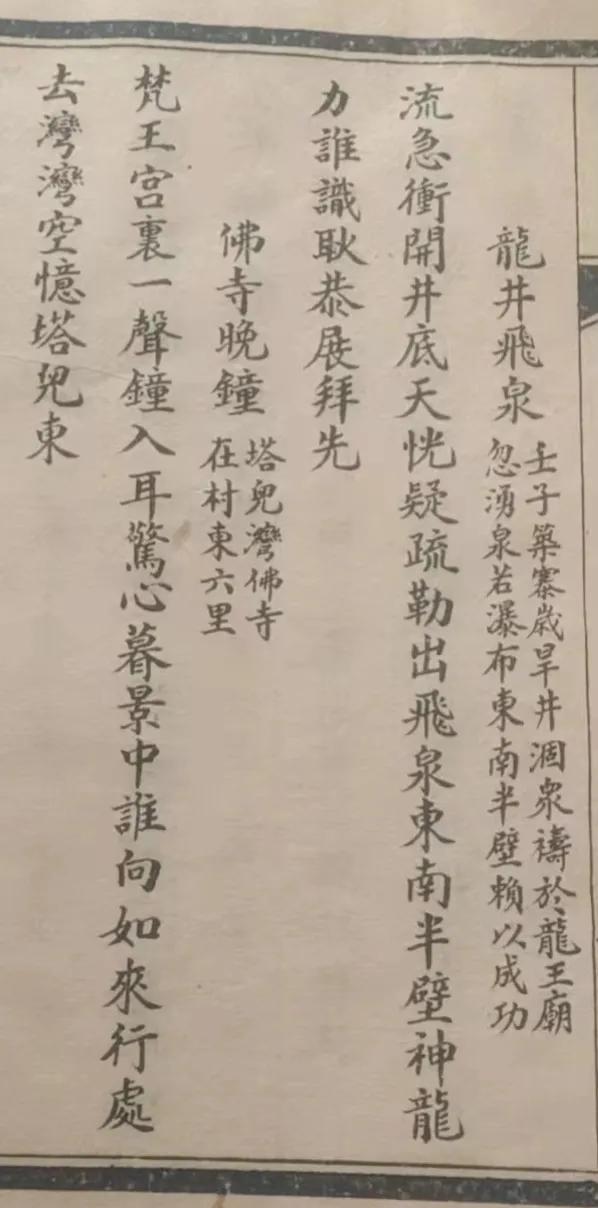 龍井飛泉
壬子築寨歲旱井涸衆禱於龍王廟
忽湧泉若瀑布東南半壁賴以成功
流急衝開井底天恍疑疏勒出飛泉東南半壁神龍
力誰識耿恭展拜先
佛寺晚鐘
塔兒灣佛寺
在村東六里
梵王宮裏一聲鐘入耳驚心暮景中誰向如來行處
去灣灣空憶塔兒東